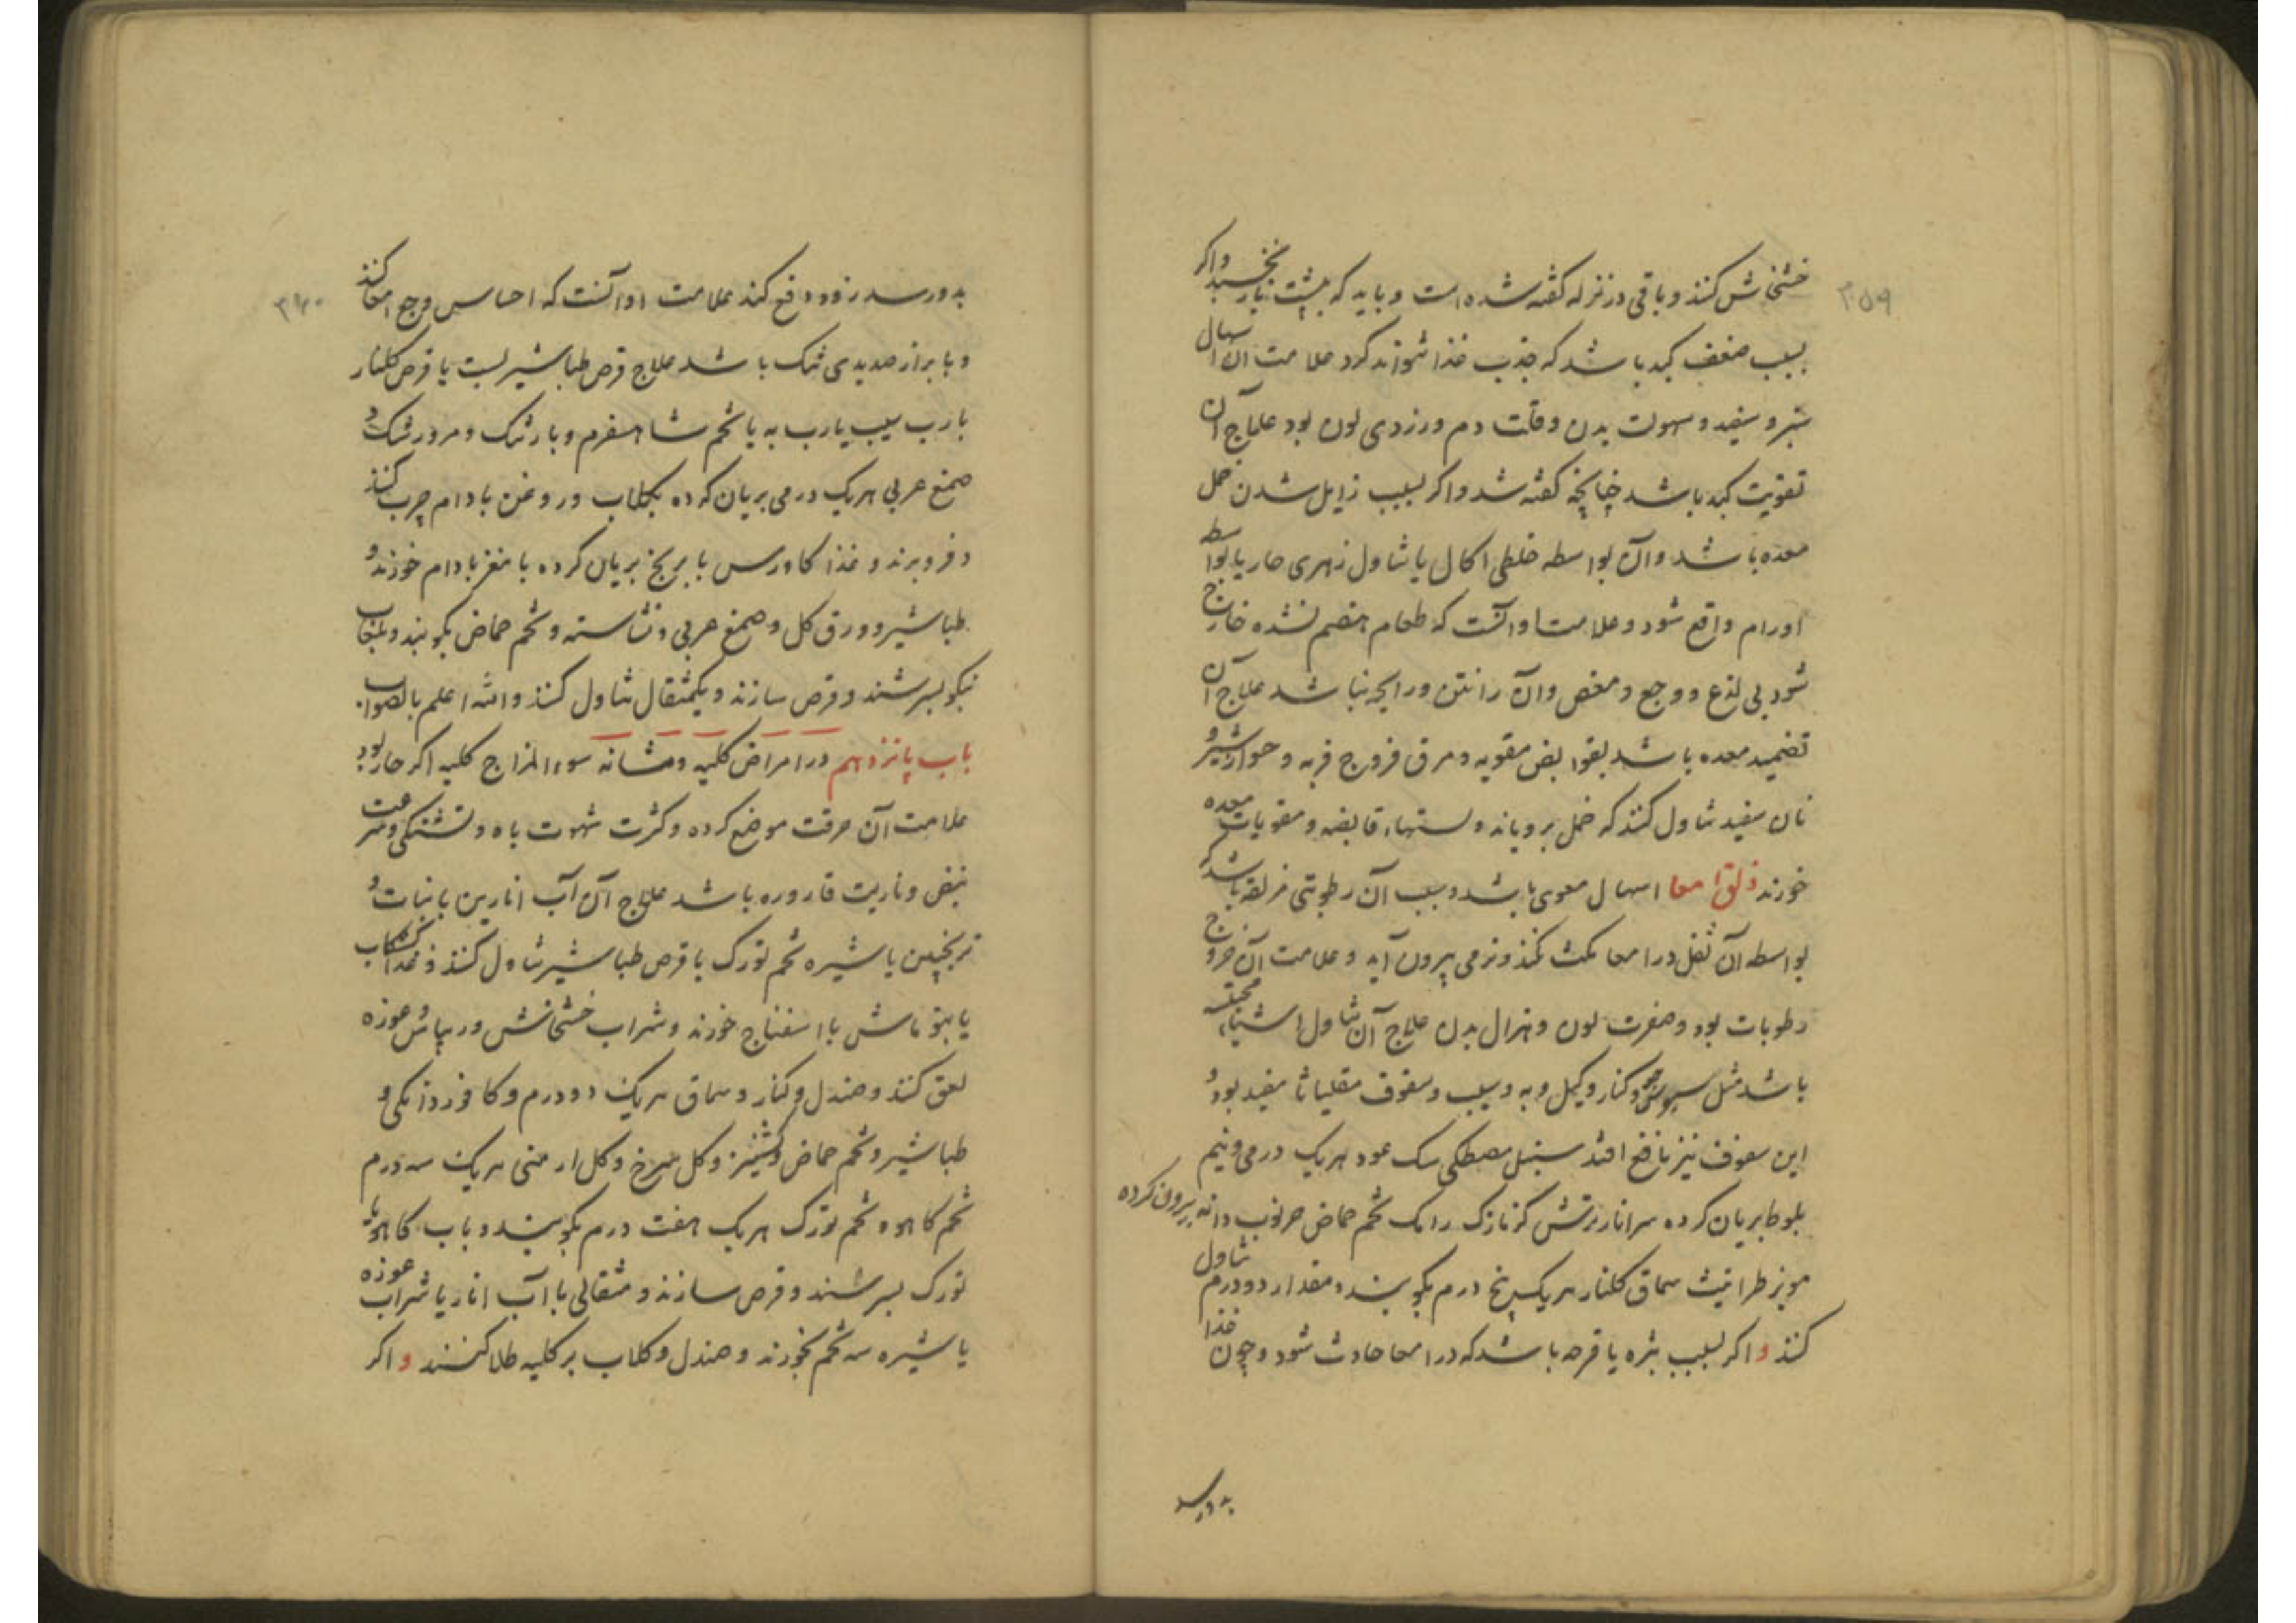 ۳۵۹
خشخاش کنند و باقی در نزله گفته شده است و باید که بپشت باز نخسبد واکر
بسبب ضعف کبد باشد که جذب غذا نتواند کرد علامت آن اسهال
سبز و سفید و سهولت بدن وقلت دم و زردی لون بود علاج آن
تقویت کبد باشد چنانچه گفته شد واکر بسبب زایل شدن خمل
معده باشد وآن بواسطه خلطی اکال یا تناول زهری حار یا بواسطه
اورام واقع شود وعلامت او آنست که طعام هضم نشده خارج
شود بی لذع و وجع و مغص وآن را نتن و رایحه نباشد علاج آن
تضمید معده باشد بقوابض مقویه و مرق فروج فربه و شیر و
نان سفید تناول کنند که خمل برویاند و قابضه و مقویات معده
خورند زلق امعا اسهال معوی باشد و سبب آن رطوبتی مزلقه باشد که
بواسطه آن ثفل در امعا مکث نکند و نرمی بیرون آید و علامت آن خروج
رطوبات بود و صفرت لون و هزال بدن علاج آن تناول اشیاء مجففه
باشد مثل وکنار وکیل و به و سیب و سفوف مقلیاثا مفید بود و
این سفوف نیز نافع افتد سنبل مصطکی سک عود هریک درمی ونیم
بلوط بریان کرده سر انار ترش کزنازک رامک تخم حماض خرنوب دانه بیرون کرده
مویز طراثیث سماق کلنار هریک پنج درم بکوبند و مقدار دو درم تناول
کنند و اکر بسبب بثره یا قرحه باشد که در امعا حادث شود و چون غذا
بدو رسد
۳۶۰
بدو رسد زود دفع کند علامت او آنست که احساس وجع امعا کنند
و با براز صدیدی تنک باشد علاج قرص طباشیر بست یا قرص کلنار
با رب سیب یا رب به یا تخم شاهسفرم و بارتنک و مرو رشک و
صمغ عربی هریک درمی بریان کرده بکلاب و روغن بادام چرب کنند
و فرو برند و غذا کاورس با برنج بریان کرده با مغز بادام خورند و
طباشیر و ورق کل و صمغ عربی و نشاسته و تخم حماض بکوبند و بلعاب
نیکو بسرشند و قرص سازند و یکمثقال تناول کنند والله اعلم بالصواب
باب پانزدهم در امراض کلیه و مثانه سوء المزاج کلیه اکر حار بود
علامت آن حرقت موضع کرده و کثرت شهوت باه و تشنکی و سرعت
نبض و ناریت قاروره باشد علاج آن آب انارین با نبات و
ترنجبین یا شیره تخم تورک با قرص طباشیر تناول کنند و غذا کشکاب
یا بنو ماش با اسفناج خورند و شراب خشخاش و ریباس و غوره
لعق کنند و صندل و کنار و سماق هریک دو درم و کافور دانکی و
طباشیر و تخم حماض و کشنیز و کل سرخ و کل ارمنی هریک سه درم
تخم کاهو و تخم تورک هریک هفت درم بکوبند و باب کاهو یا
تورک بسرشند و قرص سازند و مثقالی با آب انار یا شراب غوره
یا شیره سه تخم بخورند و صندل و کلاب بر کلیه طلا کنند و اکر